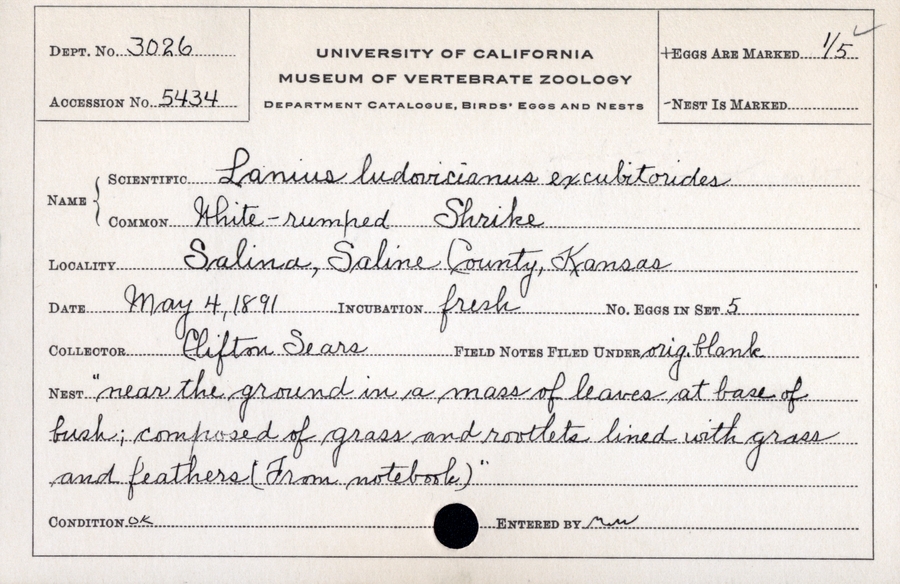 Dept. No. 3026
Accession No. 5434
UNIVERSITY OF CALIFORNIA
MUSEUM OF VERTEBRATE ZOOLOGY
Department Catalogue, Birds' Eggs and Nests
+Eggs Are Marked 1/5
-Nest Is Marked
Name { Scientific Lanius ludovicianus excubitorides
Common White-rumped Shrike
Locality Salina, Saline County, Kansas
Date May 4, 1891 Incubation fresh No. Eggs in Set 5
Collector Clifton Sears Field Notes Filed Under orig. blank
Nest "near the ground in a mass of leaves at base of
bush; composed of grass and rootlets lined with grass
and feathers (From notebook)"
Condition OK Entered by